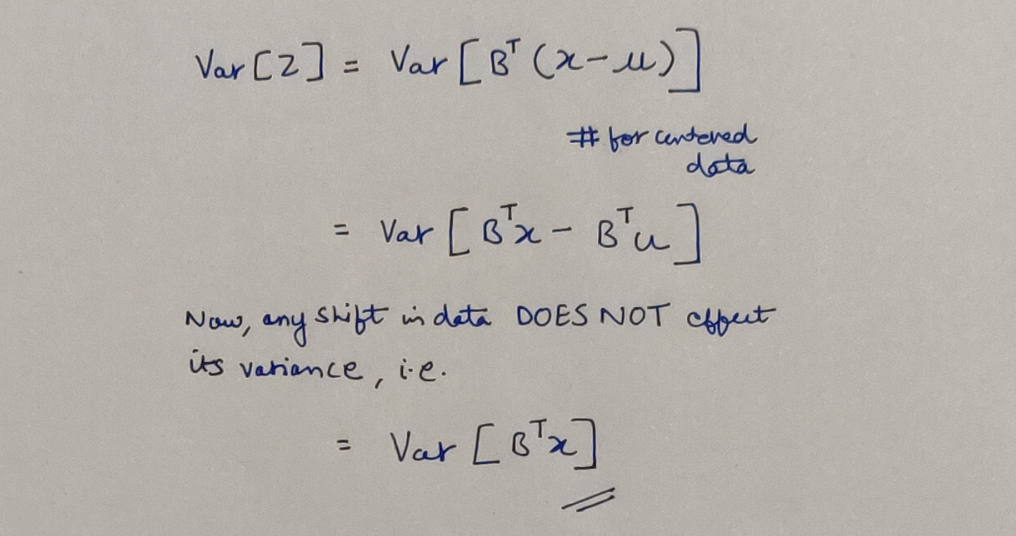 Var [Z] = Var [Bᵀ (x-μ)]
# for centered
data
= Var [Bᵀx - Bᵀμ]
Now, any shift in data DOES NOT effect
its variance, i.e.
= Var [Bᵀx]